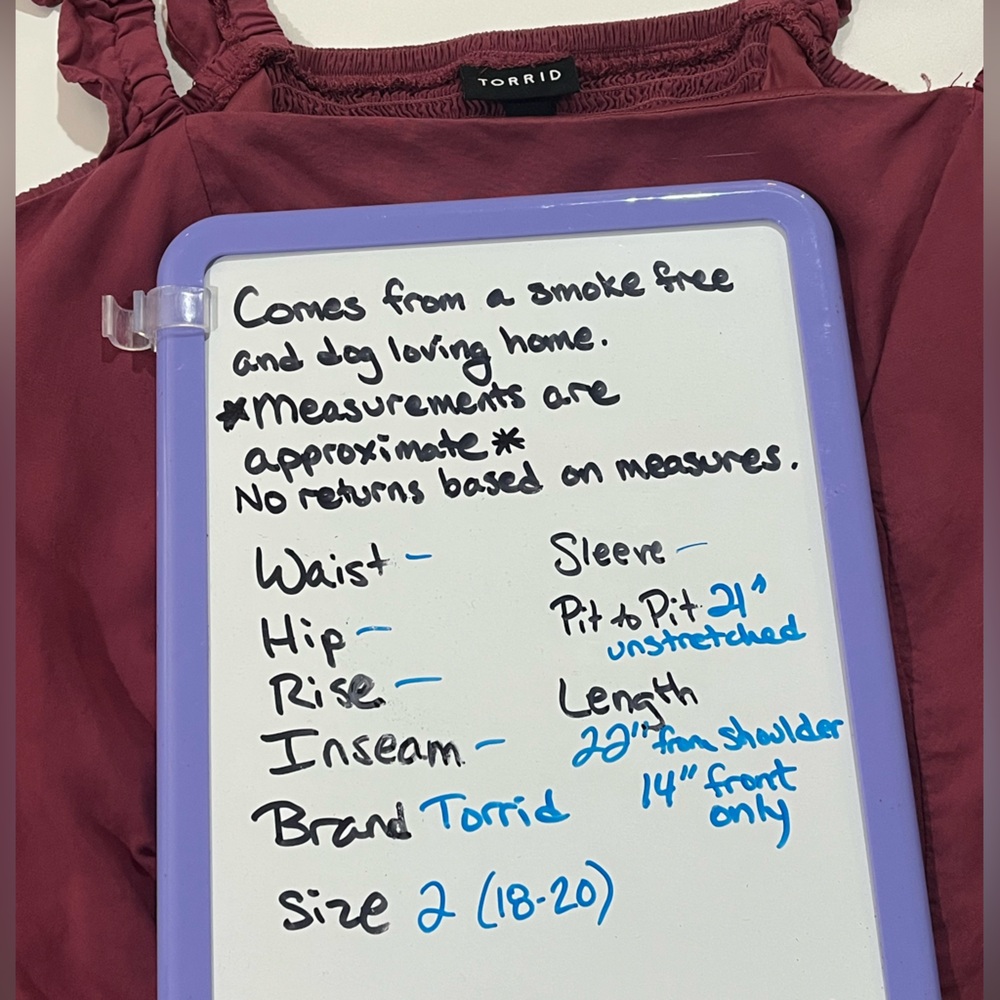 TORRID
Comes from a smoke free
and dog loving home.
*Measurements are
approximate*
No returns based on measures.
Waist -
Hip -
Rise -
Inseam -
Brand Torrid
Size 2 (18-20)
Sleeve -
Pit to Pit 21"
unstretched
Length
22" from shoulder
14" front
only